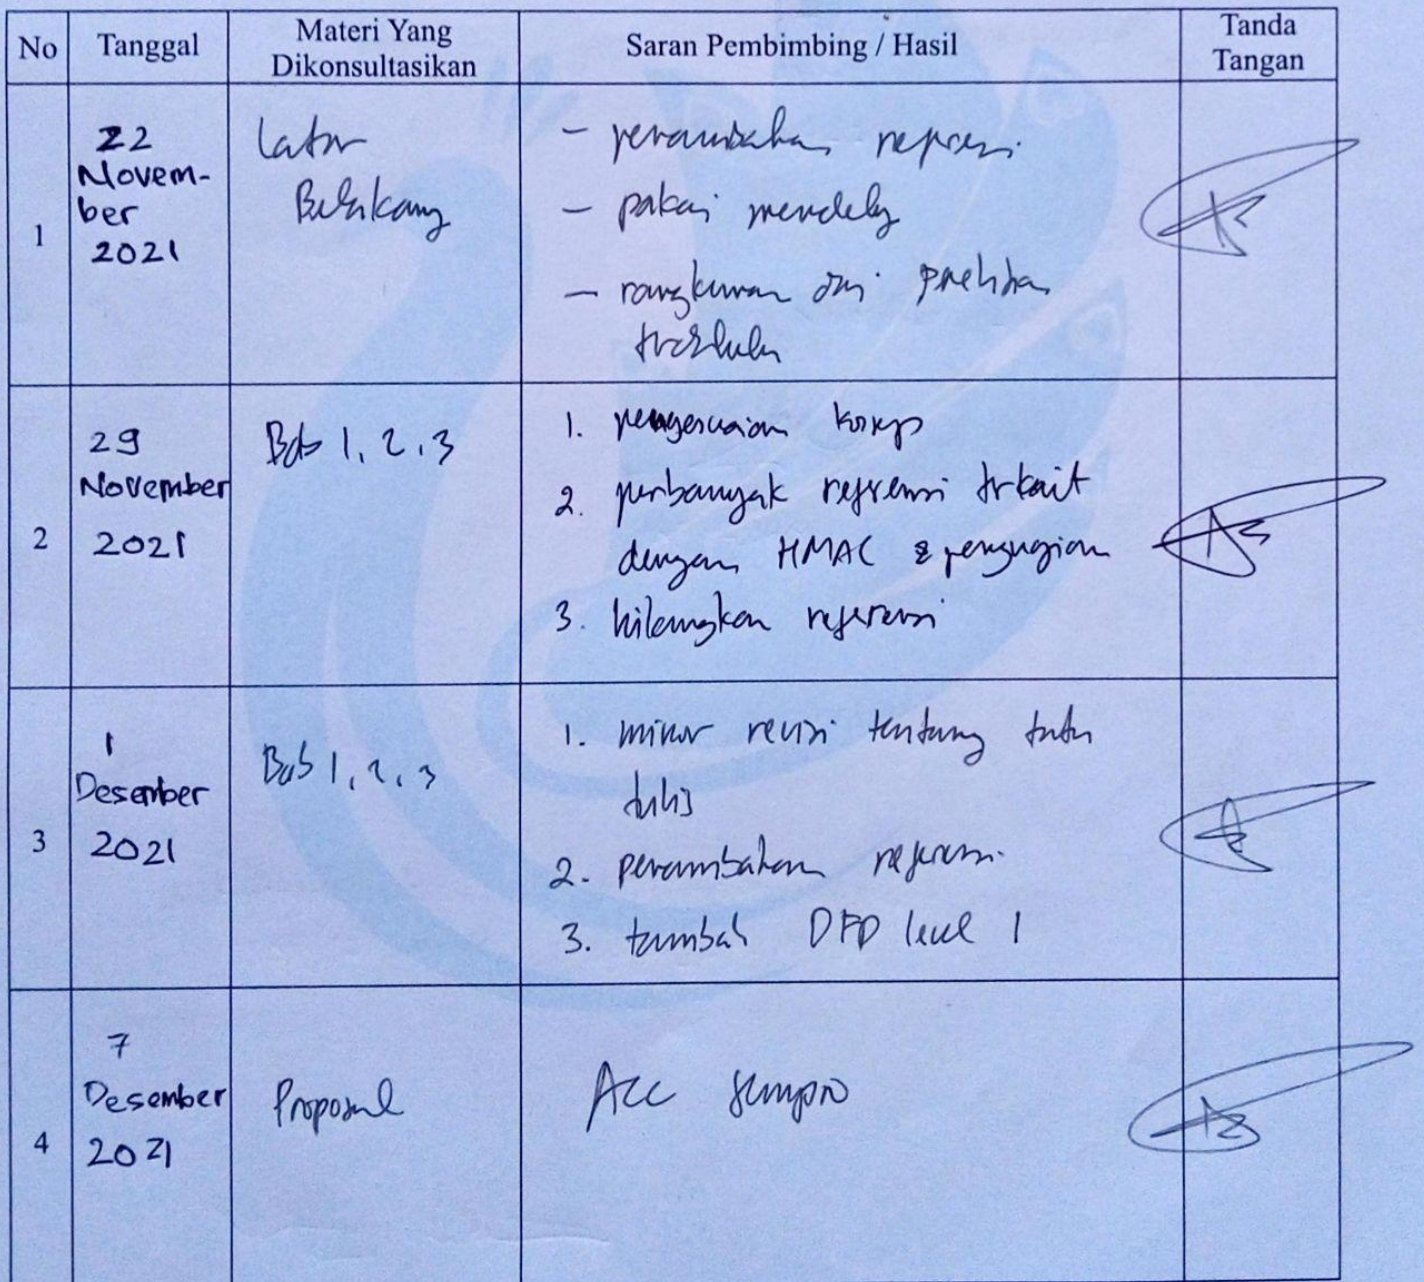 No
Tanggal
Materi Yang
Dikonsultasikan
Saran Pembimbing / Hasil
Tanda
Tangan
1
22
Novem-
ber
2021
Latar
Belakang
- penambahan referensi
- pakai mendeley
- rangkuman dari penelitian
terdahulu
2
29
November
2021
Bab 1, 2, 3
1. penyesuaian konsep
2. perbanyak referensi terkait
dengan HMAC & pengujian
3. hilangkan referensi
3
1
Desember
2021
Bab 1, 2, 3
1. minor revisi tentang tata
tulis
2. penambahan referensi
3. tambah DFD level 1
4
7
Desember
2021
Proposal
Acc sempro